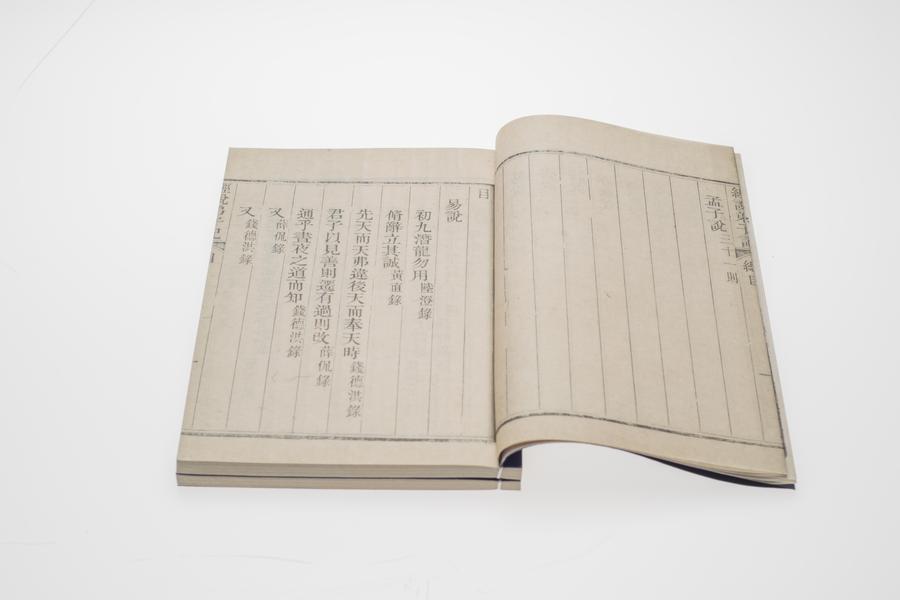 孟子說三十一則
目
易說
初九潛龍勿用陸澄錄
脩辭立其誠黃直錄
先天而天弗違後天而奉天時錢德洪錄
君子以見善則遷有過則改薛侃錄
通乎晝夜之道而知錢德洪錄
又薛侃錄
又錢德洪錄